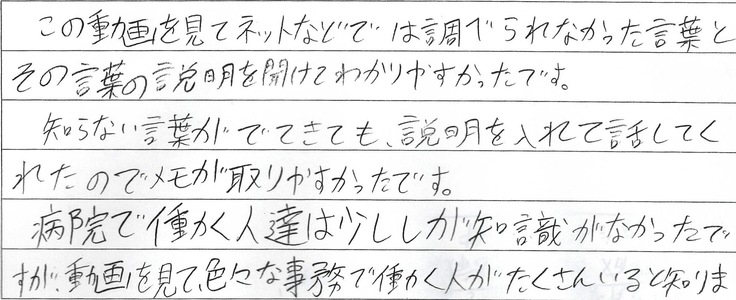 この動画を見てネットなどでは調べられなかった言葉と
その言葉の説明を聞けてわかりやすかったです。
知らない言葉がでてきても、説明を入れて話してく
れたのでメモが取りやすかったです。
病院で働く人達は少ししか知識がなかったで
すが、動画を見て、色々な事務で働く人がたくさんいると知りま